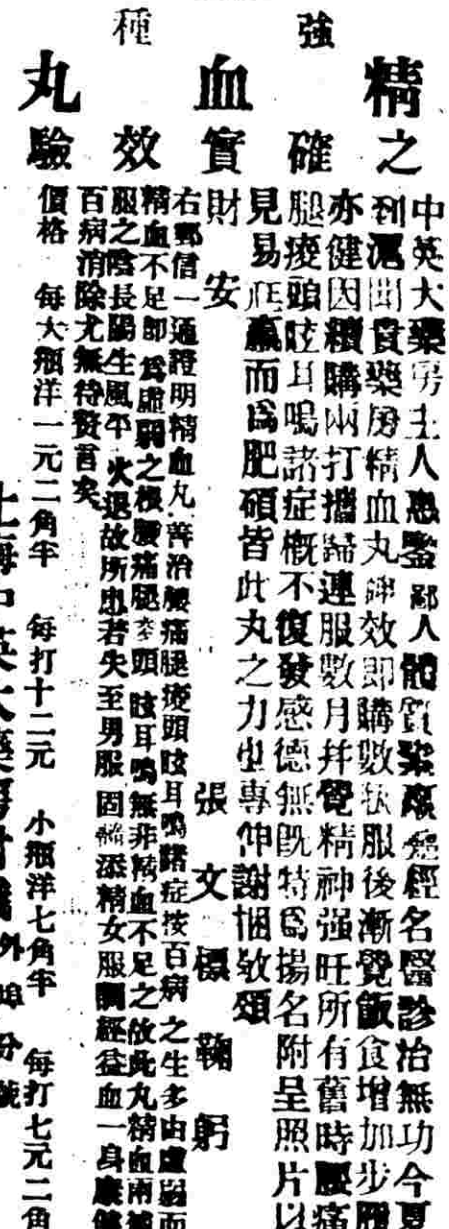 強種
精血丸
之確實效驗
中英大藥房主人惠鑒鄙人體質素羸經名醫診治無功今夏
到滬聞貴藥房精血丸神效即購數瓶服後漸覺飯食增加步履
亦健因續購兩打攜歸連服數月幷覺精神强旺所有舊時腰痛
腿痠頭眩耳鳴諸症概不復發感德無旣特爲揚名附呈照片以
見易尫羸而爲肥碩皆此丸之力也專伸謝悃敬頌
財安 張文標鞠躬
右郵信一通證明精血丸善治腰痛腿痠頭眩耳鳴諸症按百病之生多由虛弱而
精血不足卽爲虛弱之根腰痛腿痠頭眩耳鳴無非精血不足之故此丸精血兩補
服之陰長陽生風平火退故所患若失至男服固添精女服調經益血一身康健
百病消除尤無待贅言矣
價格 每大瓶洋一元二角半 每打十二元 小瓶洋七角半 每打七元二角
上海中英大藥房 外埠分號